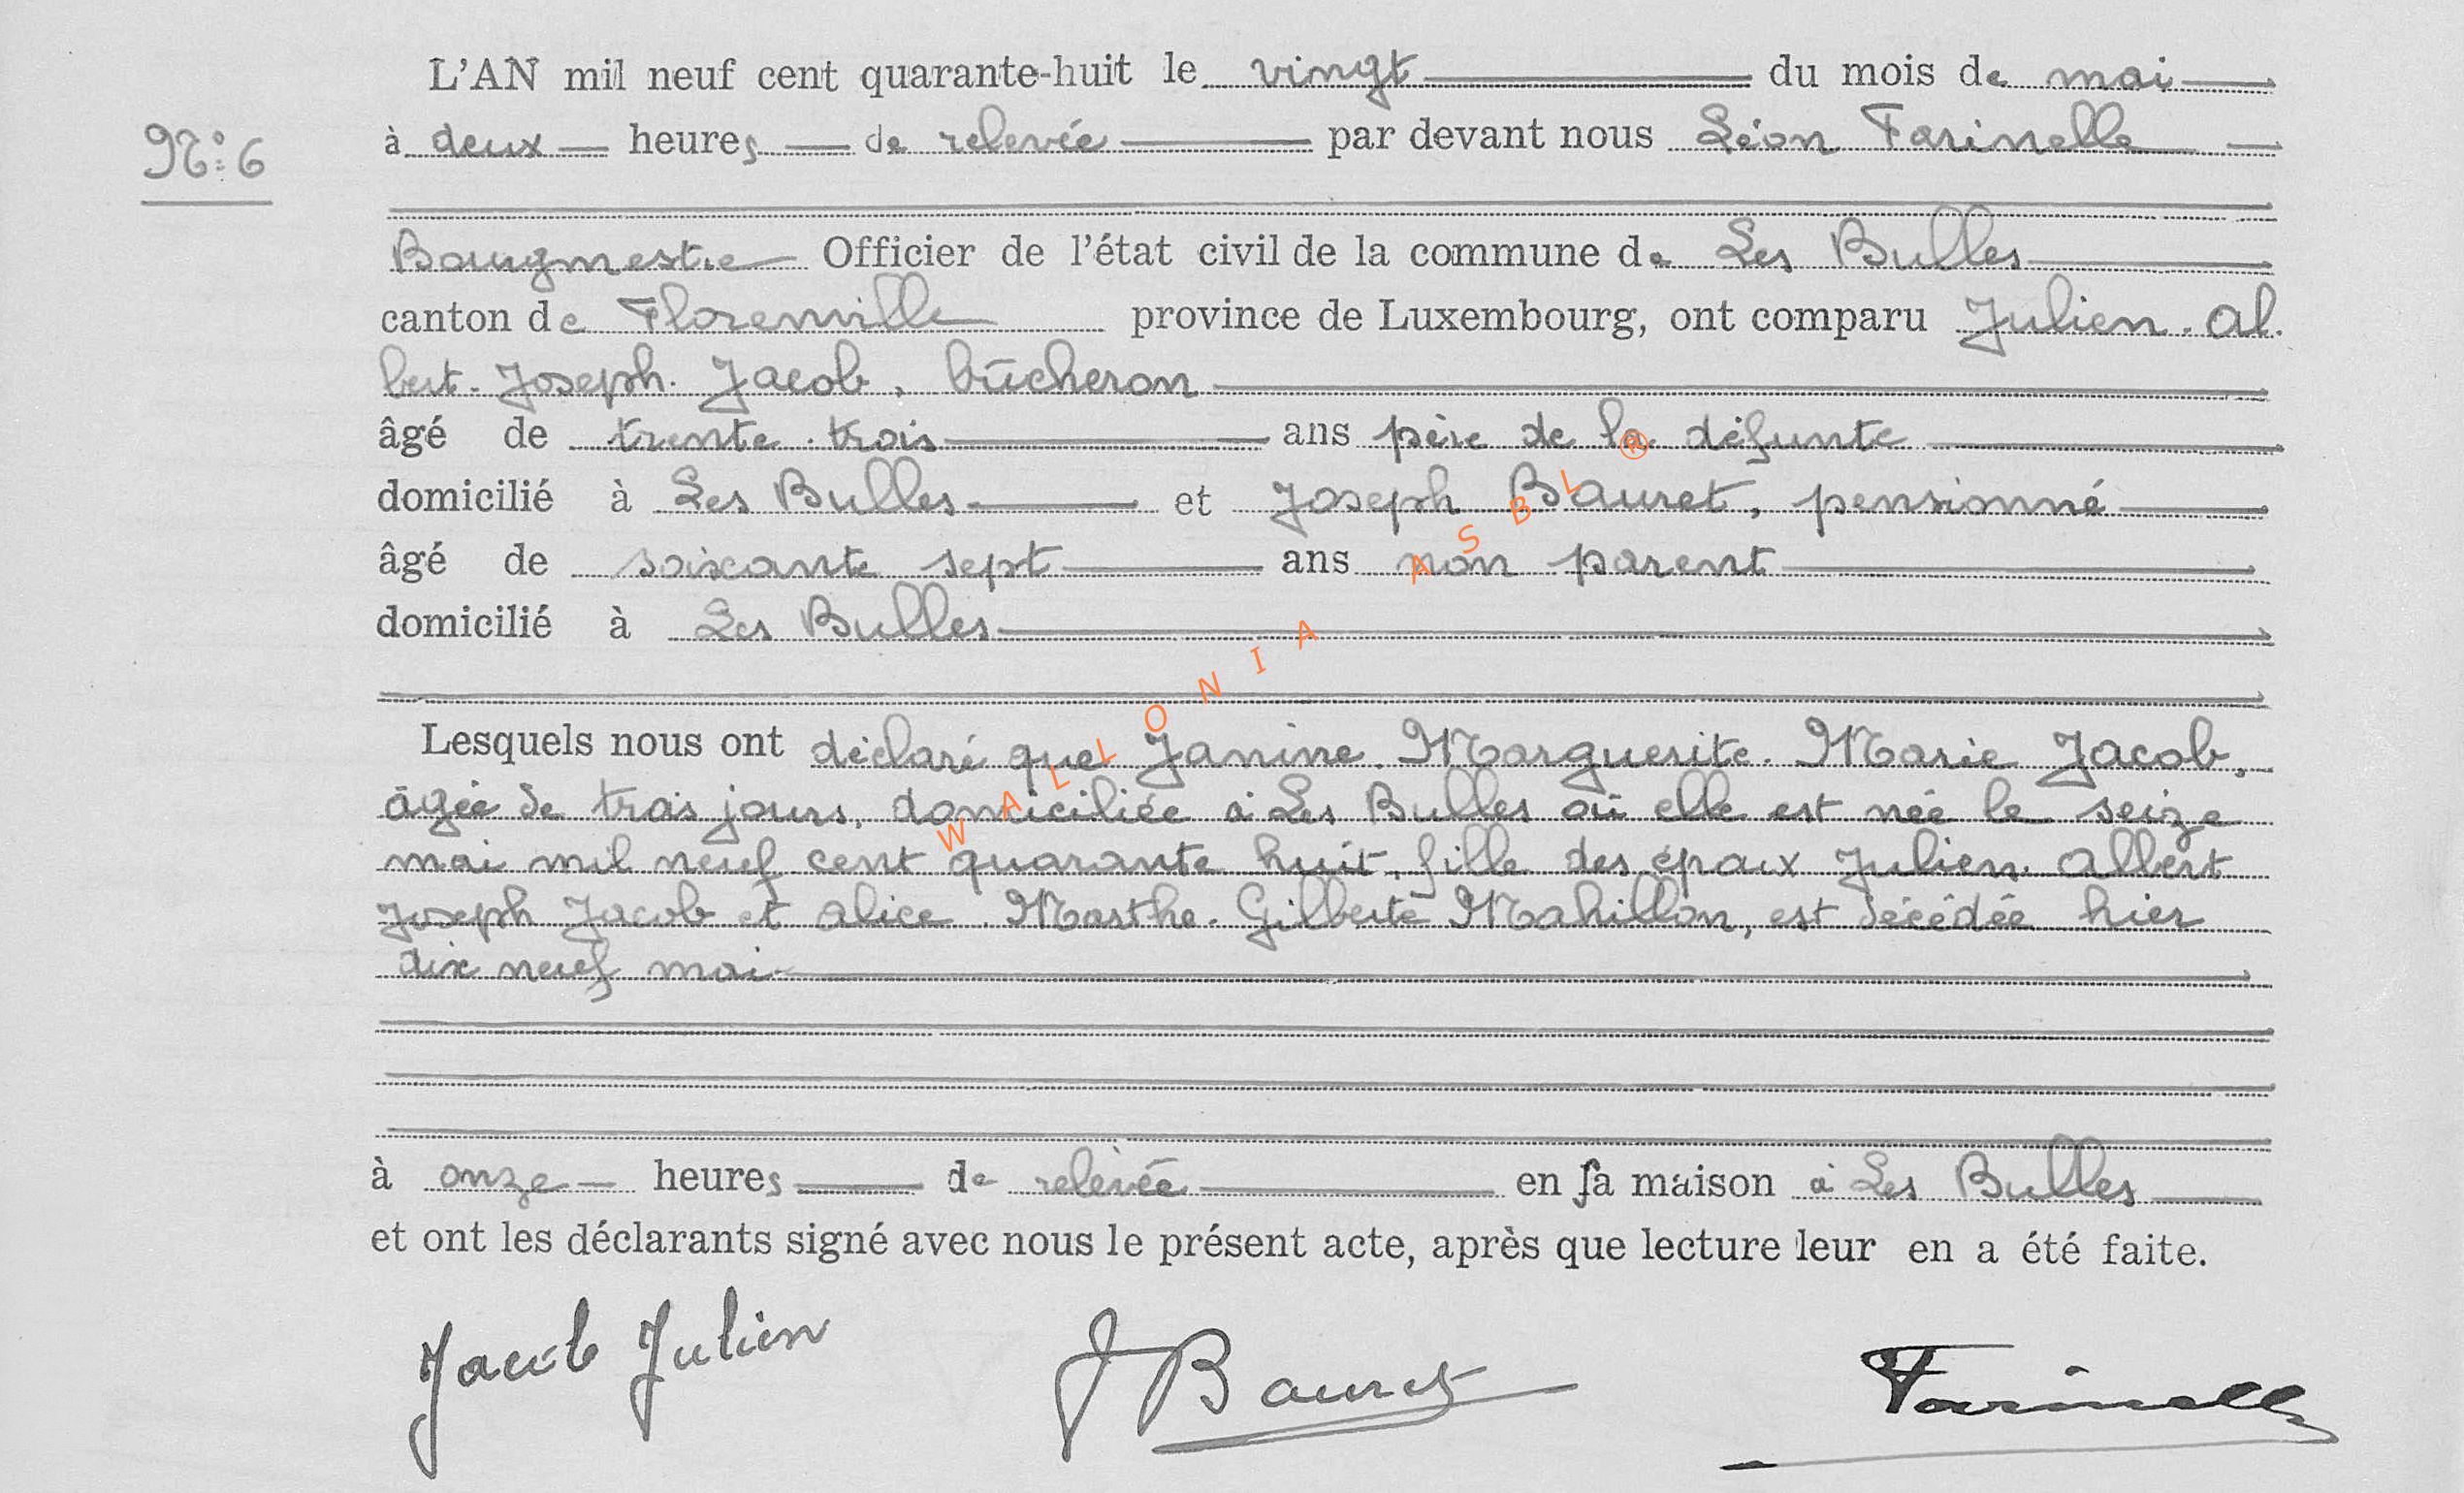 L'AN mil neuf cent quarante-huit le vingt du mois de mai
N° 6
à deux heures de relevée par devant nous Léon Farinelle
Bourgmestre Officier de l'état civil de la commune de Les Bulles
canton de Florenville province de Luxembourg, ont comparu Julien. Al.
bert. Joseph. Jacob, bûcheron
âgé de trente trois ans père de la défunte
domicilié à Les Bulles et Joseph Bauret, pensionné
âgé de soixante sept ans non parent
domicilié à Les Bulles
Lesquels nous ont déclaré que Janine. Marguerite. Marie Jacob,
âgée de trois jours, domiciliée à Les Bulles où elle est née le seize
mai mil neuf cent quarante huit, fille des époux Julien. Albert
Joseph Jacob et Alice. Marthe. Gilberte Mahillon, est décédée hier
dix neuf mai
à onze heures de relevée en sa maison à Les Bulles
et ont les déclarants signé avec nous le présent acte, après que lecture leur en a été faite.
Jacob Julien J Bauret Farinelle
WALLONIA ASBL ®